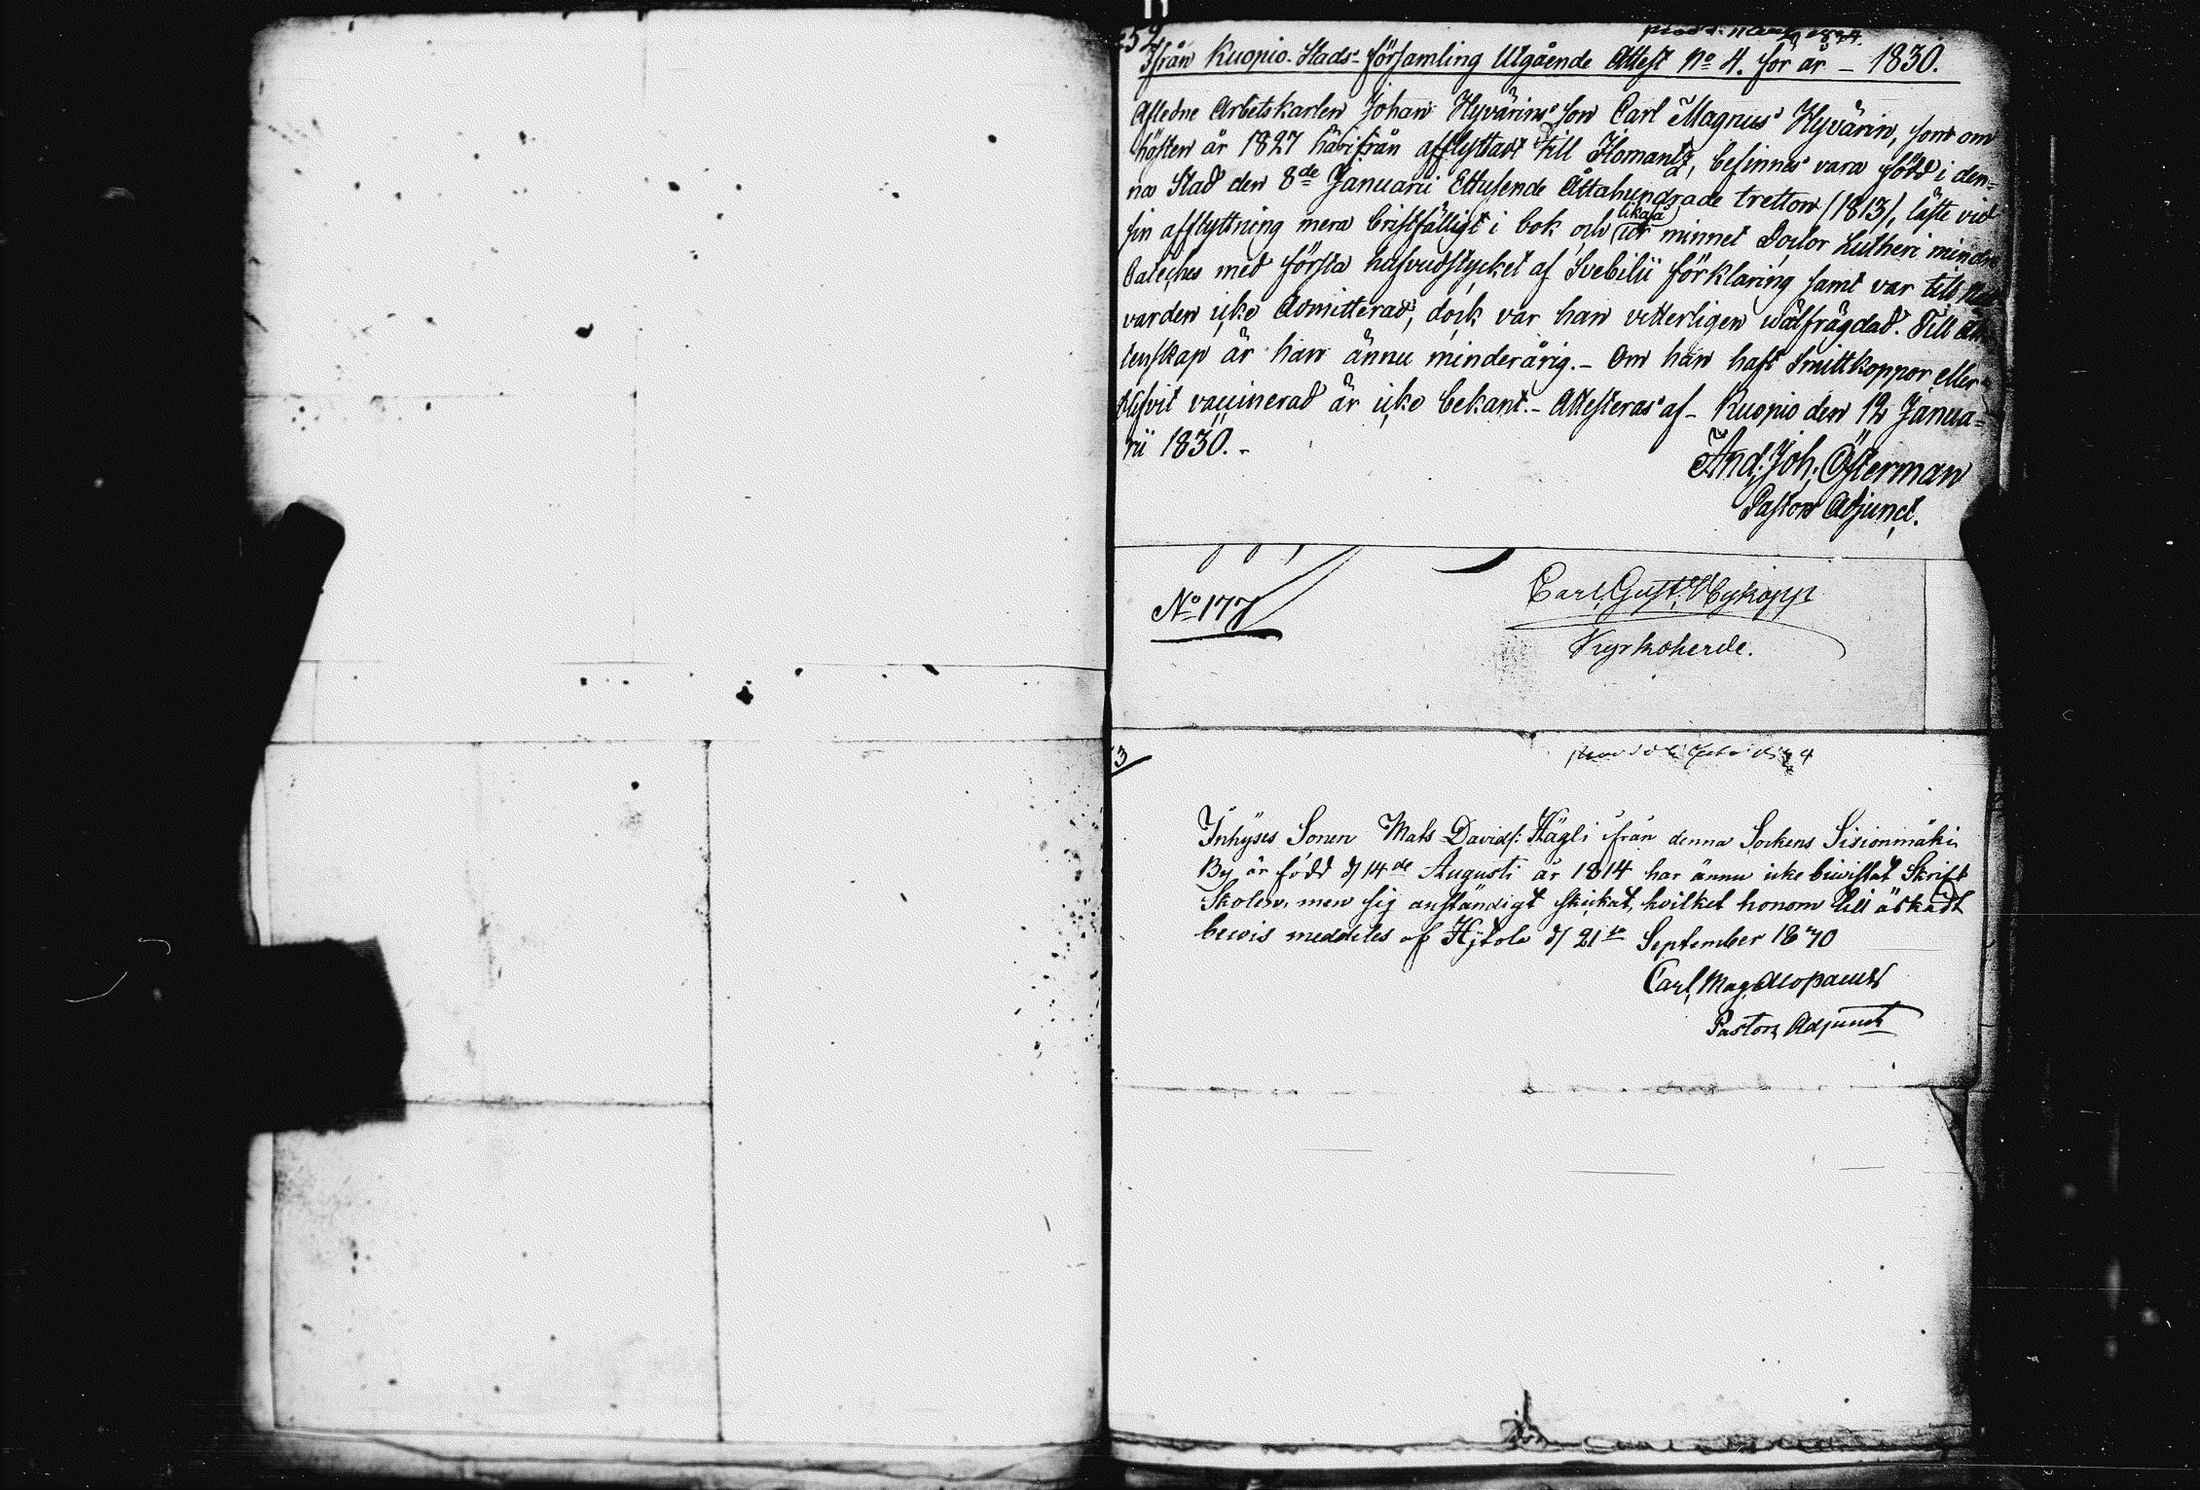 252
Ifrån Kuopio Stads-församling Utgående Attest No 4. för år – 1830.
Afledne Arbetskarlen Johan Hyvärins son Carl Magnus Hyvärin, som om
hösten år 1827 härifrån afflyttadt till Ilomants, befinnes vara född i den-
na Stad den 8de Januarii Ettusende Åttahundrade tretton (1813), läste vid
sin afflyttning mera bristfälligt i bok och likaså ur minnet Doctor Lutheri mindre
Cateches med första hufvudstycket af Svebilii förklaring samt var till
varden icke admitterad, dock var han vitterligen wälfrägdad. Till äk-
tenskap är han ännu minderårig. – Om han haft Smittkoppor eller
blifvit vaccinerad är icke bekant. – Attesteras af – Kuopio den 12 Janua-
rii 1830. –
And. Joh. Österman
Pastors Adjunct.
No 177
Carl Gust.
Kyrkoherde.
3
Inhyses Sonen Mats Davids: Hägli ifrån denna Sockens Sisionmäki
By är född d/ 14de Augusti år 1814 har ännu icke biwistat Skrift
Skolen, men sig anständigt skickat, hvilket honom till äskadt
bewis meddeles af Hitola d/ 21 September 1830
Carl Mag. Alopaeus
Pastors Adjunct